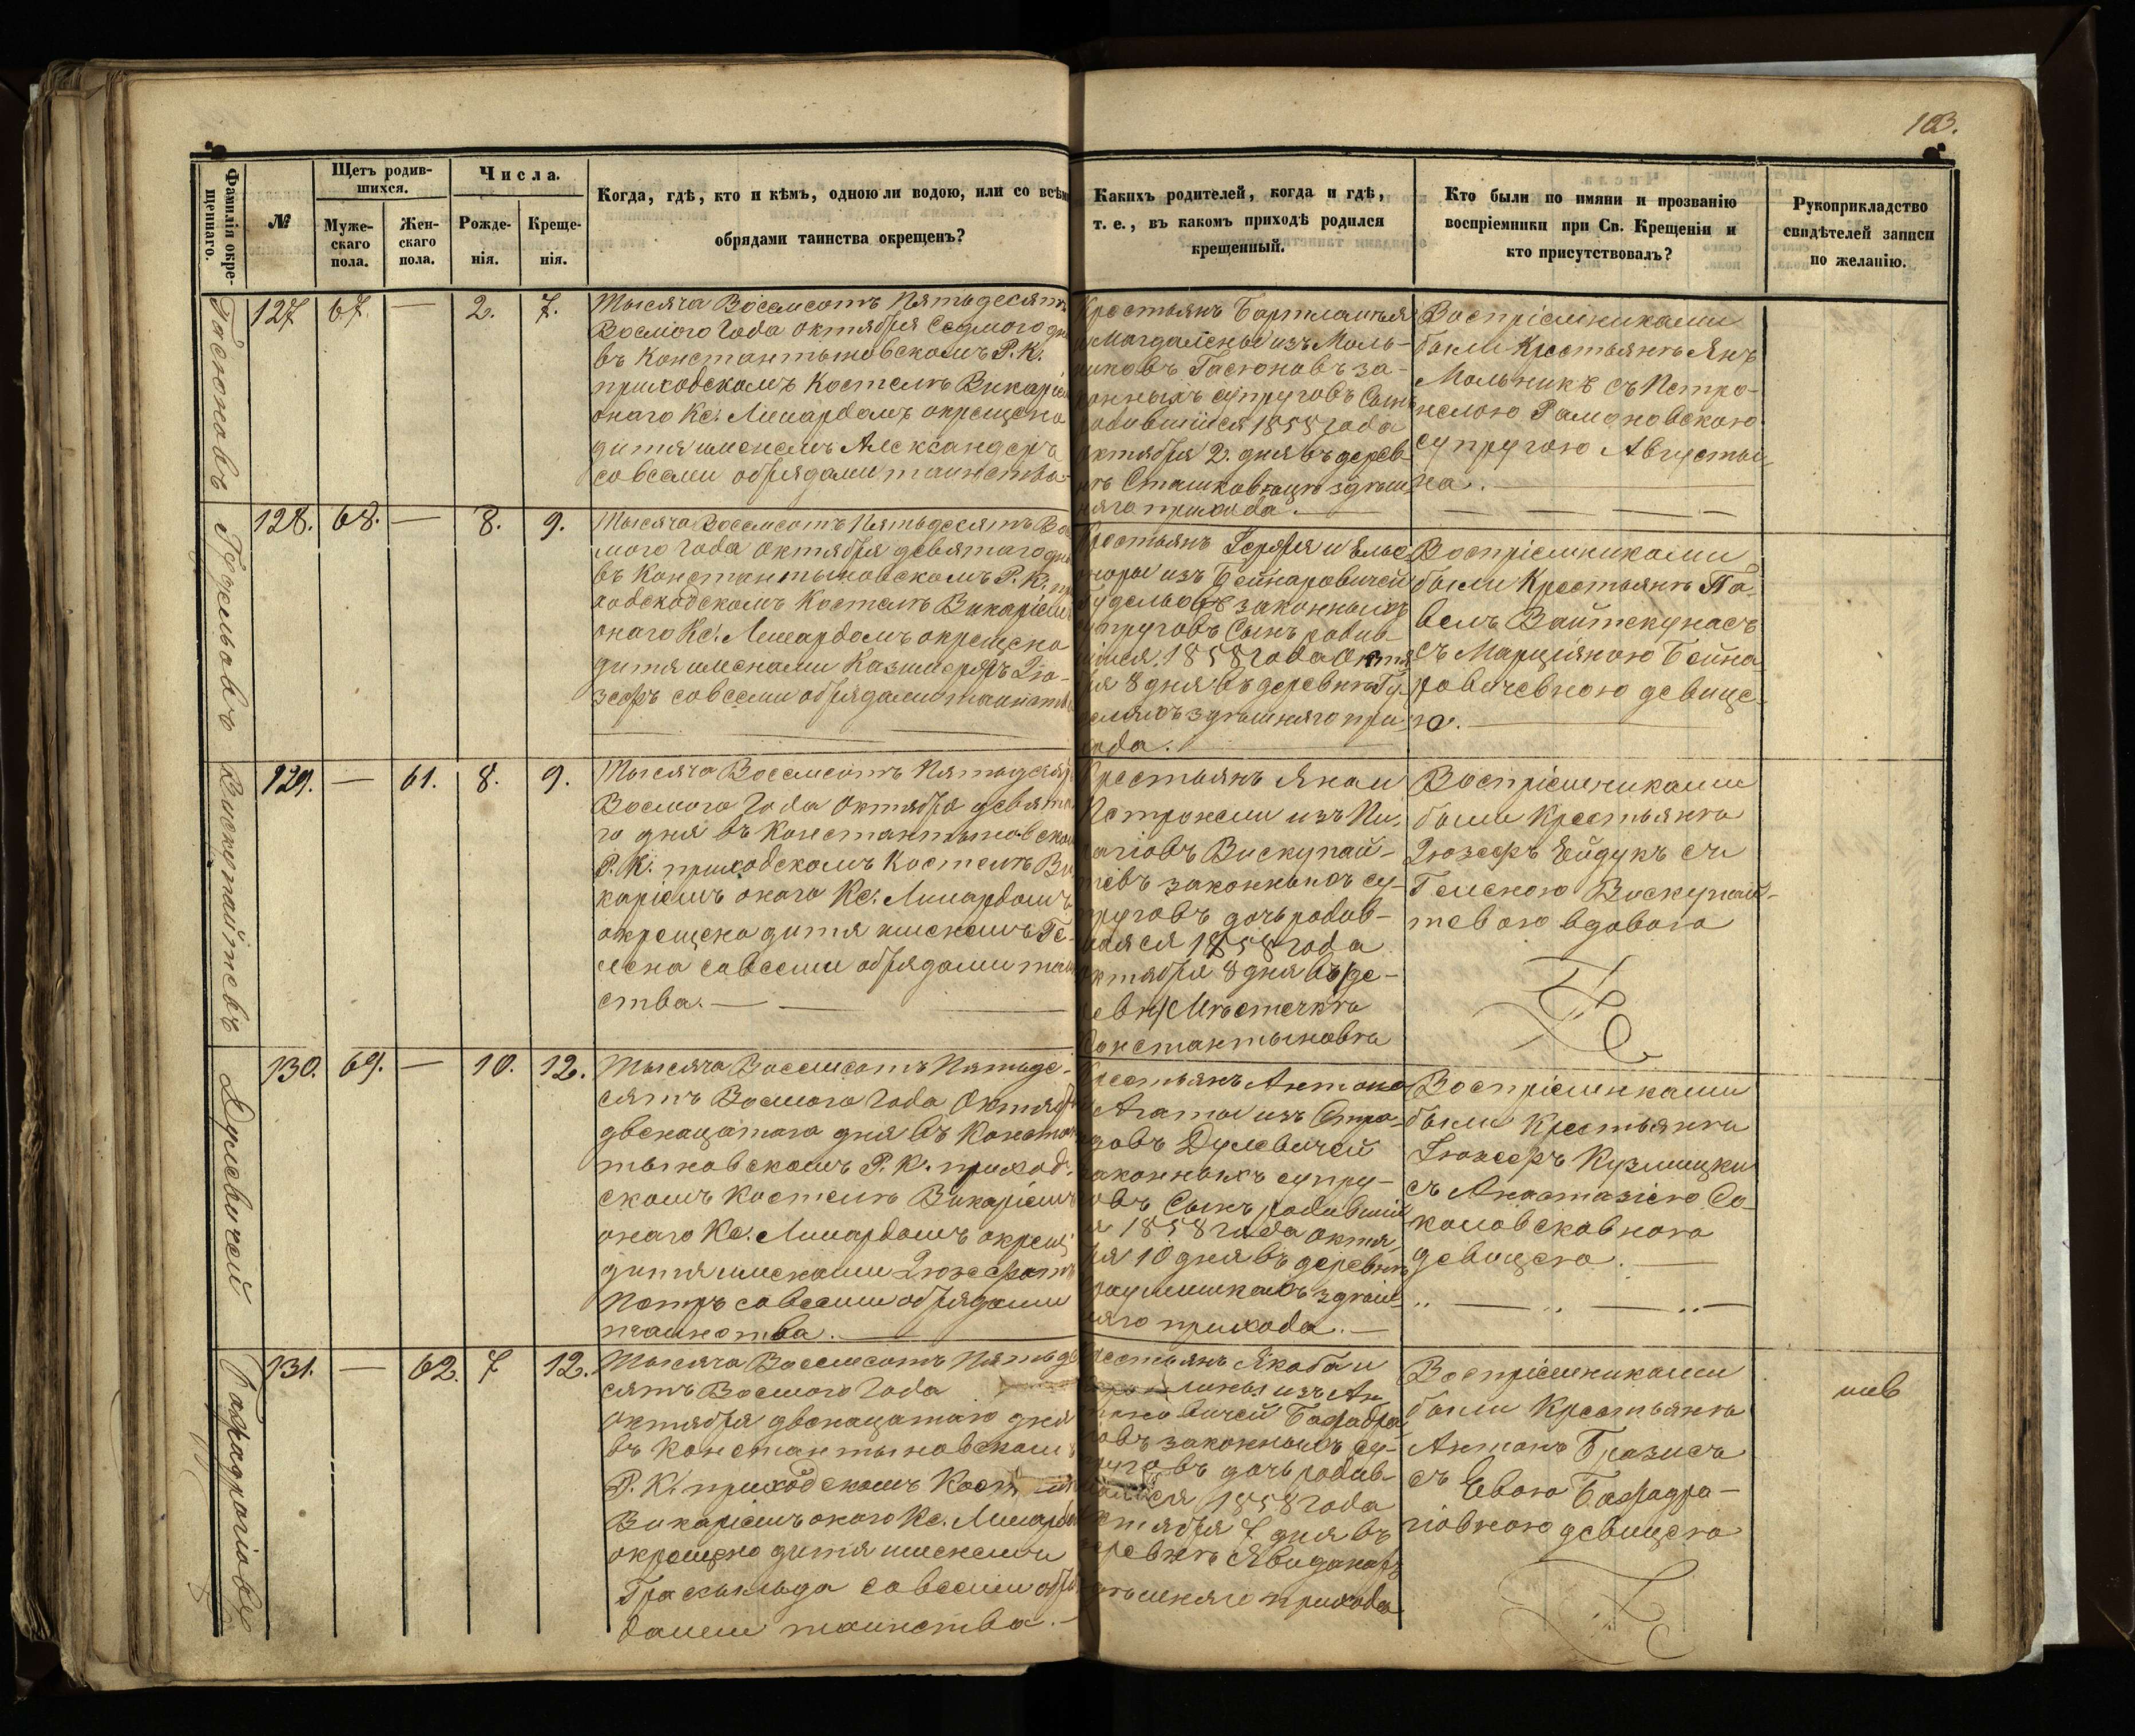 103.
Фамилія окре-
щеннаго.
№
Щетъ родив-
шихся.
Муже-
скаго
пола.
Жен-
скаго
пола.
Числа.
Рожде-
нія.
Креще-
нія.
Когда, гдѣ, кто и кѣмъ, одною ли водою, или со всѣми
обрядами таинства окрещенъ?
Какихъ родителей, когда и гдѣ,
т. е., въ какомъ приходѣ родился
крещенный.
Кто были по имяни и прозванію
воспріемники при Св. Крещеніи и
кто присутствовалъ?
Рукоприкладство
свидѣтелей записи
по желанію.
Гасюновъ
127
67.
—
2.
7.
Тысяча Восемсотъ Пятьдесятъ
Восмого Года Октября Седмого дня
въ Константыновскомъ Р. К.
приходскомъ Костелѣ Викаріемъ
онаго Кс. Линардомъ окрещено
дитя именемъ Александеръ
со всеми обрядами таинства
Крестьянъ Бартламѣя
и Магдалены изъ Моль-
никовъ Гасюновъ за-
конныхъ супруговъ Сынъ
родившійся 1858 года
Октября 2. дня въ дерев-
нѣ здѣш-
няго прихода.
Воспріемниками
были Крестьянѣ Янъ
Мольникъ съ Петро-
нелою
супругою Августы-
на.
128.
68.
—
8.
9.
Тысяча Восемсотъ Пятьдесятъ Во-
смого Года Октября девятаго дня
въ Константыновскомъ Р. К. при-
ходскодскомъ Костелѣ Викаріемъ
онаго Кс. Линардомъ окрещено
дитя именами Казимеръ Іо-
зефъ со всеми обрядами таинства
Крестьянъ и Елье
оноры изъ Бейнаровичей
законныхъ
супруговъ Сынъ родив-
шійся 1858 года Октя-
бря 8 дня въ деревнѣ Гу-
деляхъ здѣшняго при-
хода.
Воспріемниками
были Крестьянѣ Па-
велъ Вайткунасъ
съ Марціяною Бейна-
ровичевною девице-
ю.
Вискупайтевъ
129.
—
61.
8.
9.
Тысяча Восемсотъ Пятьдесятъ
Восмого Года Октября девята-
го дня въ Константыновскомъ
Р. К. приходскомъ Костелѣ Ви-
каріемъ онаго Кс. Линардомъ
окрещено дитя именемъ Ге-
лена со всеми обрядами таин-
ства.
Крестьянъ Яна и
Петронели изъ
Вискупай-
тевъ законныхъ су-
пруговъ дочь родив-
шаяся 1858 года
Октября 8 дня въ /де-
ревн/ Мѣстечкѣ
Константыновѣ
Воспріемниками
были Крестьянѣ
Іюзефъ Ейдукъ съ
Геленою Вискупай-
тевою вдовою
Дулевичей
130.
69.
—
10.
12.
Тысяча Восемсотъ Пятьде-
сятъ Восмого Года Октября
двенацатаго дня въ Констан-
тыновскомъ Р. К. приход-
скомъ Костелѣ Викаріемъ
онаго Кс. Линардомъ окрещ.
дитя именами Іюзефатъ
Петръ со всеми обрядами
таинства.
Крестьянъ Антона
и Агаты изъ
Дулевичей
законныхъ супру-
говъ Сынъ родившій
ся 1858 года Октя-
бря 10 дня въ деревнѣ
здѣш-
няго прихода.
Воспріемниками
были Крестьянѣ
Іюзефъ Кузмицки
съ Анастазіею Со-
коловсковною
девицею.
131.
—
62.
7
12.
Тысяча Восемсотъ Пятьде-
сятъ Восмого Года
Октября двенацатаго дня
въ Константыновскомъ
Р. К. приходскомъ
Викаріемъ онаго Кс. Линардомъ
окрещено дитя именемъ
со всеми обря-
дами таинства.
Крестьянъ Якоба и
изъ Ан
законныхъ су-
пруговъ дочь родив-
шаяся 1858 года
Октября 7 дня въ
деревнѣ
здѣшняго прихода
Воспріемниками
были Крестьянѣ
Антонъ Бразисъ
съ Евою
девицею